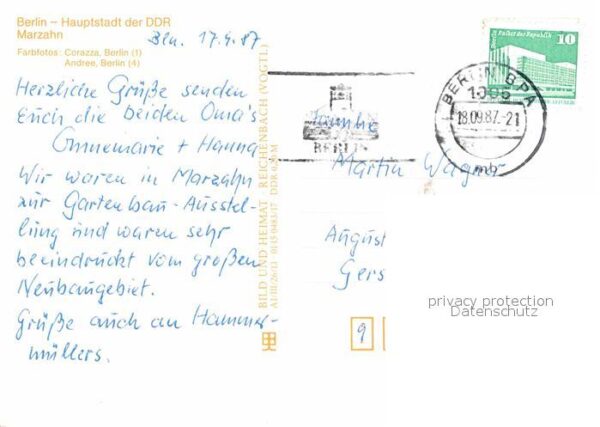 Berlin – Hauptstadt der DDR
Marzahn
Farbfotos: Corazza, Berlin (1)
Andree, Berlin (4)
Bln. 17.9.87
Herzliche Grüße senden
Euch die beiden Oma's
Annemarie + Hanna
Wir waren in Marzahn
zur Gartenbau-Ausstel-
lung und waren sehr
beeindruckt vom großen
Neubaugebiet.
Grüße auch an Hammer-
müllers.
BILD UND HEIMAT REICHENBACH (VOGTL)
A1/III/26/13 01 15 0483/17 DDR M
BERLIN
Familie
Martin Wagner
August
Gers
9
Berlin Palast der Republik
10
BERLIN BPA
1085
18.09.87.-21
mb
privacy protection
Datenschutz